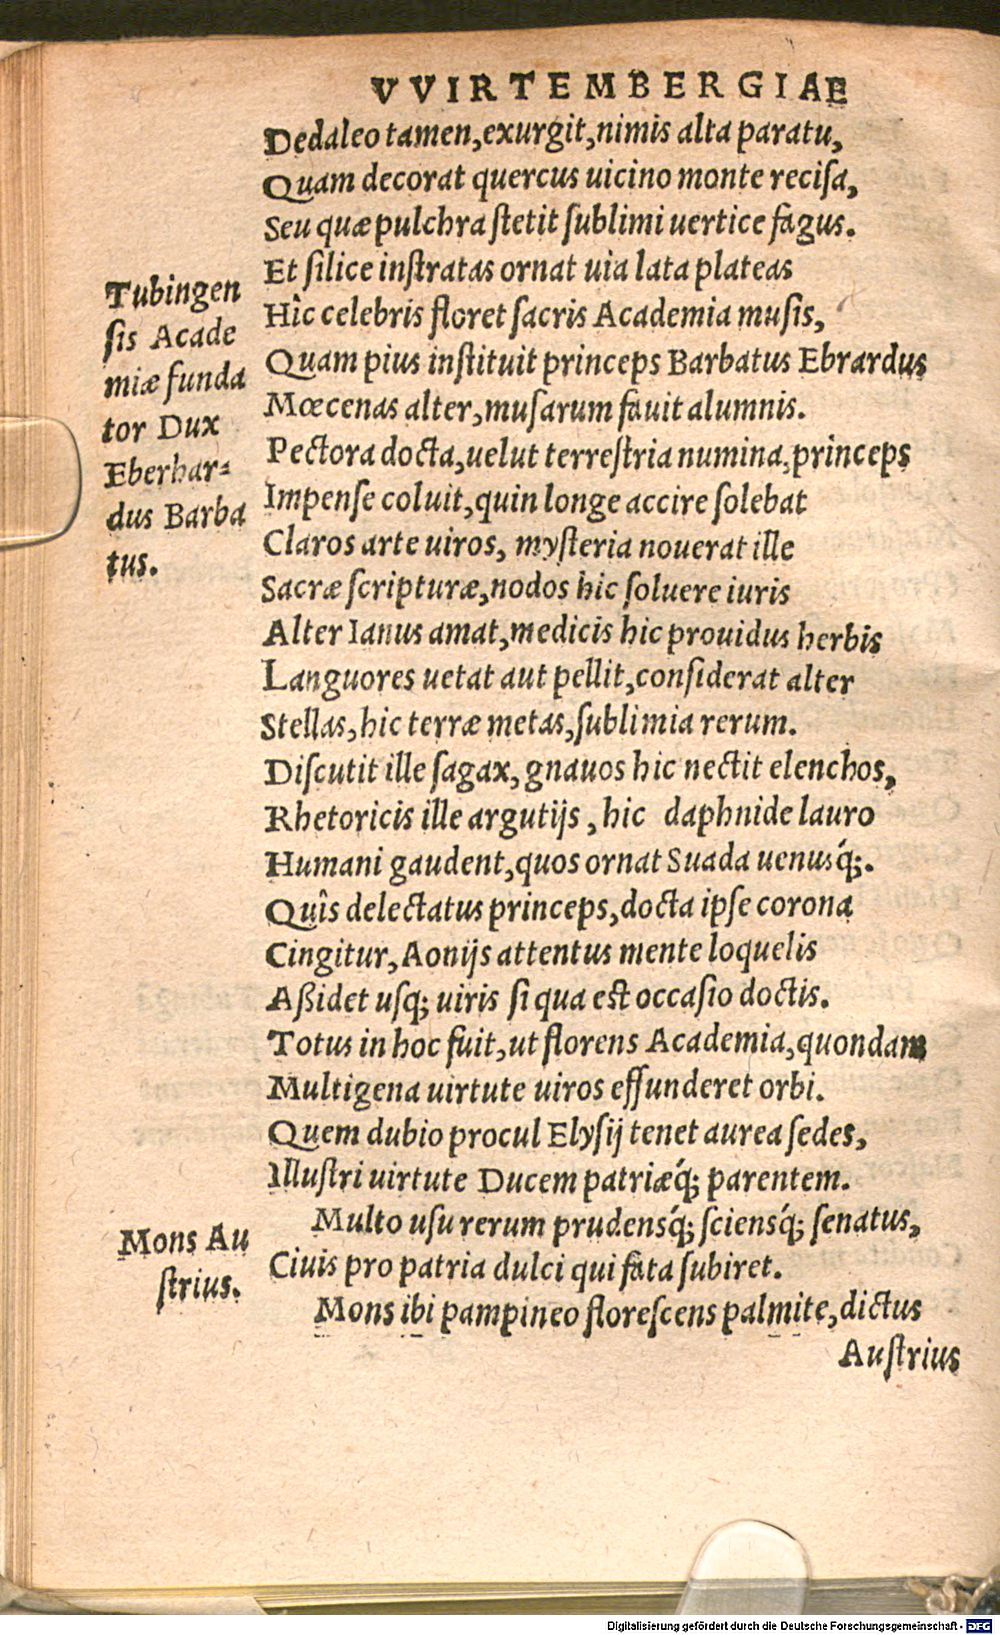 VVIRTEMBERGIAE
Dedaleo tamen, exurgit, nimis alta paratu,
Quam decorat quercus uicino monte reciſa,
Seu quæ pulchra ſtetit ſublimi uertice fagus.
Et ſilice inſtratas ornat uia lata plateas
Hîc celebris floret ſacris Academia muſis,
Quam pius inſtituit princeps Barbatus Ebrardus
Mœcenas alter, muſarum fauit alumnis.
Pectora docta, uelut terreſtria numina, princeps
Impenſe coluit, quin longe accire ſolebat
Claros arte uiros, myſteria nouerat ille
Sacræ ſcripturæ, nodos hic ſoluere iuris
Alter Ianus amat, medicis hic prouidus herbis
Languores uetat aut pellit, conſiderat alter
Stellas, hic terræ metas, ſublimia rerum.
Diſcutit ille ſagax, gnauos hic nectit elenchos,
Rhetoricis ille argutijs, hic daphnide lauro
Humani gaudent, quos ornat Suada uenusq́;.
Quîs delectatus princeps, docta ipſe corona
Cingitur, Aonijs attentus mente loquelis
Aßidet uſq; uiris ſi qua eſt occaſio doctis.
Totus in hoc fuit, ut florens Academia, quondam
Multigena uirtute uiros effunderet orbi.
Quem dubio procul Elyſij tenet aurea ſedes,
Illuſtri uirtute Ducem patriæq́; parentem.
Multo uſu rerum prudensq́; ſciensq́; ſenatus,
Ciuis pro patria dulci qui fata ſubiret.
Mons ibi pampineo floreſcens palmite, dictus
Auſtrius
Tubingen
ſis Acade
miæ funda
tor Dux
Eberhar-
dus Barba
tus.
Mons Au
ſtrius.
Digitalisierung gefördert durch die Deutsche Forschungsgemeinschaft - DFG